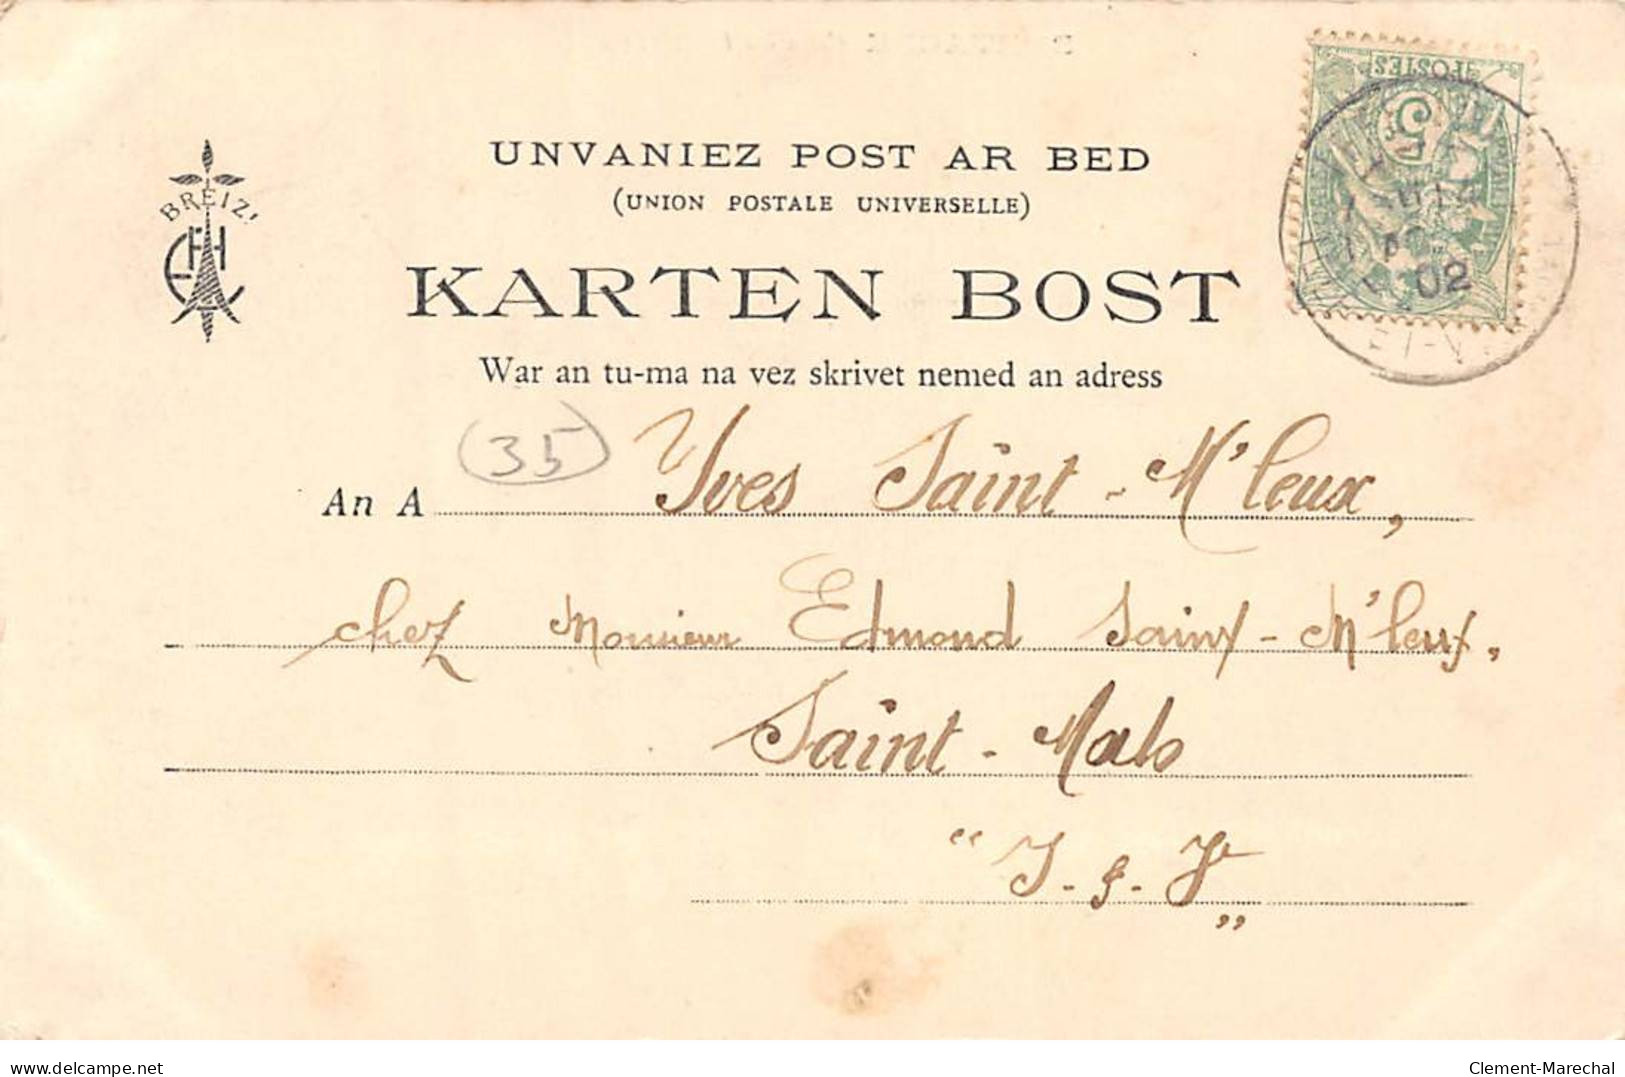 UNVANIEZ POST AR BED
(UNION POSTALE UNIVERSELLE)
BREIZ!
KARTEN BOST
War an tu-ma na vez skrivet nemed an adress
POSTES
5
02
35
An A Yves Saint-M'leux,
chez Monsieur Edmond Saint-M'leux,
Saint-Malo
"I-&-V"
delcampe.net
Clement-Marechal